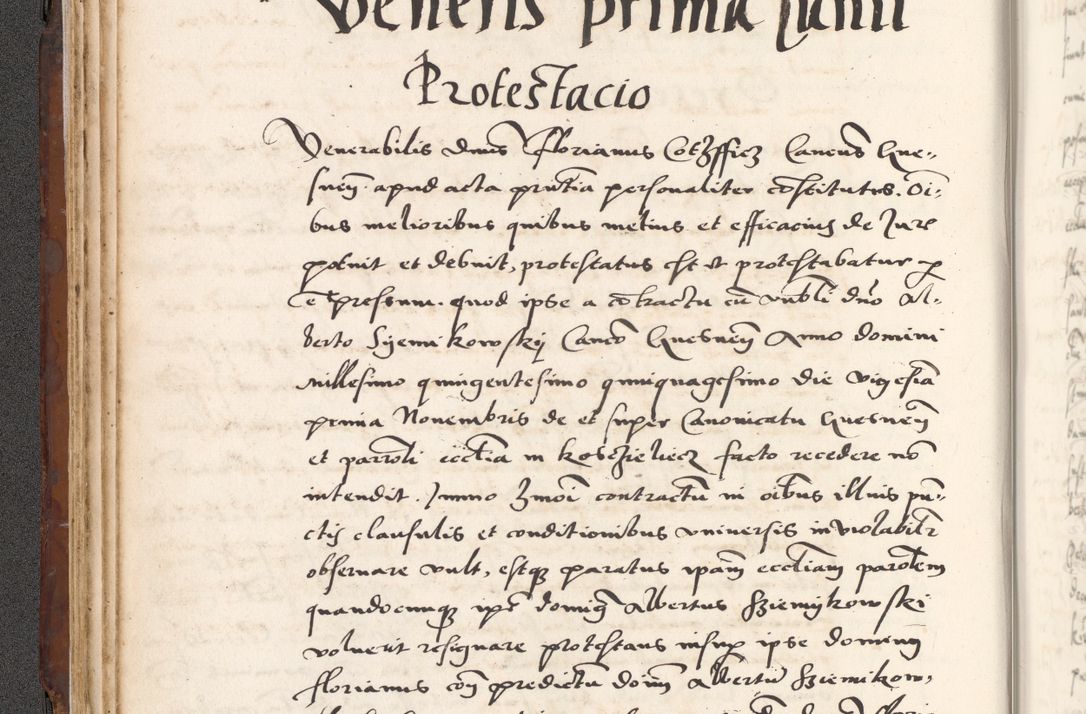 Veneris prima Junii
Protestacio
Venerabilis dnus Florianus Cotzfficz Cancus Gne-
snen apud acta pruntia personaliter costitutus. Oi-
bus melioribus quibus melius et efficacius de Jure
potuit et debuit, protestatus est et protestabatur p
expressum. quod ipse a cotractu cu vnbli dno Al-
berto Syemikowskij Canco Gnesnen Anno domini
Millesimo quingentesimo quinquagesimo die vigesia
prima Nouembris de et super Canonicatu Gnesnen
et parroli ecctia in Kosczieliecz facto recedere no
intendit. Jmmo contractu in oibus illius pun-
ctis clausulis et conditionibus vniuersis inviolabilr
obseruare vult, estq paratus ipam ecctiam parolem
quandocunq ips domin Albertus Sziemykowski
voluerit resignare protestans insup ipse dominus
Florianus con predictu domin Albertu Sziemikow-